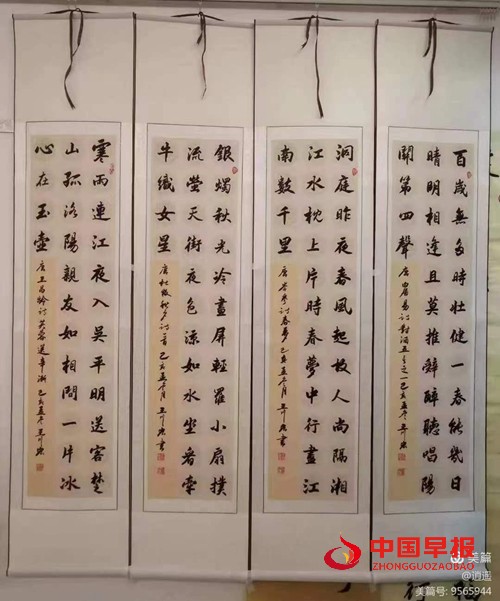 百歲無多時壯健一春能幾日
晴明相逢且莫推辭醉聽唱陽
關第四聲
唐白居易詩對酒五之一己亥孟冬
洞庭昨夜春風起故人尚隔湘
江水枕上片時春夢中行盡江
南數千里
唐岑參詩春夢己亥孟冬月
銀燭秋光冷畫屏輕羅小扇撲
流螢天街夜色涼如水坐看牽
牛織女星
唐杜牧秋夕詩一首己亥孟冬月
寒雨連江夜入吳平明送客楚
山孤洛陽親友如相問一片冰
心在玉壺
唐王昌齡詩芙蓉送辛漸己亥孟冬
中国早报
ZHONGGUOZAOBAO
美篇
@逍遥
美篇号: 9565944